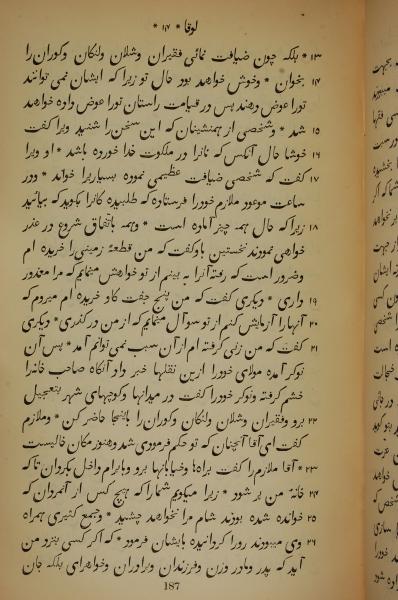 لوقا * ۱۴ *
۱۳ * بلکه چون ضیافت نمائی فقیران وشلان ولنکان وکوران را
۱۴ بخوان * وخوش خواهد بود حال تو زیرا که ایشان نمی توانند
ترا عوض دهند پس در قیامت راستان ترا عوض داده خواهد
۱۵ شد * وشخصی از همنشینان که این سخن را شنید ویرا کفت
۱۶ خوشا حال آنکس که نانرا در ملکوت خدا خورده باشد * او ویرا
۱۷ کفت که شخصی ضیافت عظیمی نموده بسیاریرا خواند * ودر
ساعت موعود ملازم خود را فرستاده که طلبیده کانرا بکوید که بیائید
۱۸ زیرا که حال همه چیز آماده است * وهمه باتفاق شروع در عذر
خواهی نمودند نخستین باو کفت که من قطعهٔ زمینی را خریده ام
وضرور است که رفته آنرا به بینم از تو خواهش مینمایم که مرا معذور
۱۹ داری * ودیکری کفت که من پنج جفت کاو خریده ام میروم که
۲۰ آنها را آزمایش کنم از تو سوآل مینمایم که از من در کذری * ودیکری
۲۱ کفت که من زنی کرفته ام از آن سبب نمی توانم آمد * پس آن
نوکر آمده مولای خود را ازین نقلها خبر داد آنکاه صاحب خانه را
خشم کرفته ونوکر خود را کفت در میدانها وکوچهای شهر بتعجیل
۲۲ برو وفقیران وشلان ولنکان وکوران را باینجا حاضر کن * وملازم
کفت ای آقا آنچنان که تو حکم فرمودی شد وهنوز مکان خالیست
۲۳ * آقا ملازم را کفت براه‌ها وخیابانها برو وبابرام داخل بکردان تا که
۲۴ خانهٔ من پر شود * زیرا میکویم شما را که هیچ کس از آنمردان که
۲۵ خوانده شده بودند شام مرا نخواهد چشید * وجمع کثیری همراه
۲۶ وی میبودند رورا کردانیده بایشان فرمود * که اکر کسی بنزد من
آید که پدر ومادر وزن وفرزندان وبرادران وخواهرای بلکه جان
187